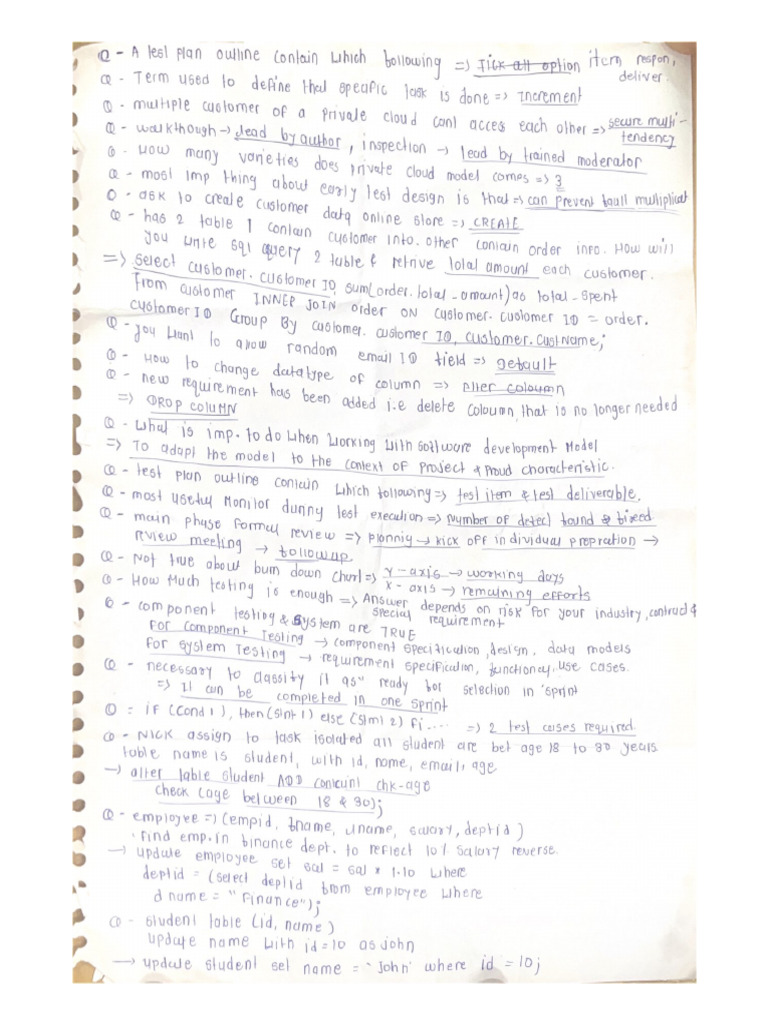 Q - A test plan outline contain which bollowing => Tick all option item respon, deliver.
Q - Term used to define that specific task is done => Increment
Q - multiple customer of a private cloud cant access each other => secure multi-tendency
Q - walkthough -> lead by author, inspection -> lead by trained moderator
Q - How many varieties does private cloud model comes => 3
Q - most imp thing about early test design is that => can prevent fault multiplicat
Q - ask to create customer data online store => CREATE
Q - has 2 table 1 contain customer into. other contain order info. How will
you write sql query 2 table & retrive total amount each customer.
=> select customer. customer ID, sum(order. total_amount) as total_spent
from customer INNER JOIN order ON customer. customer ID = order.
customer ID Group By customer. customer ID, customer. CustName;
Q - you want to random email ID field => Default
Q - How to change datatype of column => Alter coloumn
Q - new requirement has been added i.e delete coloumn, that is no longer needed
=> DROP COLUMN
Q - what is imp. to do when working with software development Model
=> To adapt the model to the context of Project & Proud characteristic.
Q - test plan outline contain which following => test item & test deliverable.
Q - most useful Monitor durmy test execution => Number of detect found & fixed
Q - main phase formal review => Planniy -> kick off individual prepration ->
Review meeting -> followup
Q - Not true about burn down chart => Y-axis -> working days
X-axis -> remaining efforts
Q - How Much testing is enough => Answer depends on risk for your industry, contract &
special requirement
Q - component testing & System are TRUE
For Component Testing -> component specification, design. data models
for system Testing -> requirement specification, functionay, use cases.
Q - necessary to classity it as" ready for selection in 'sprint
=> It can be completed in one sprint
Q = if (Cond 1), then (stnt 1) else (Stmt 2) fi.... => 2 test cases required
Q - Nick assign to task isolated all student are bet age 18 to 30 years
table name is student, with id, name, email, age
-> alter table student ADD chk-age
check (age between 18 & 30);
Q - employee => (empid, fname, lname, salary, deptid)
. find emp. in binance dept. to reflect 10% salary reverse.
-> update employee set sal = sal * 1.10 where
deptid = (select deptid from employee where
d name = "Finance");
Q - student table (id, name)
update name with id=10 as john
-> update student set name = 'John' where id = 10;